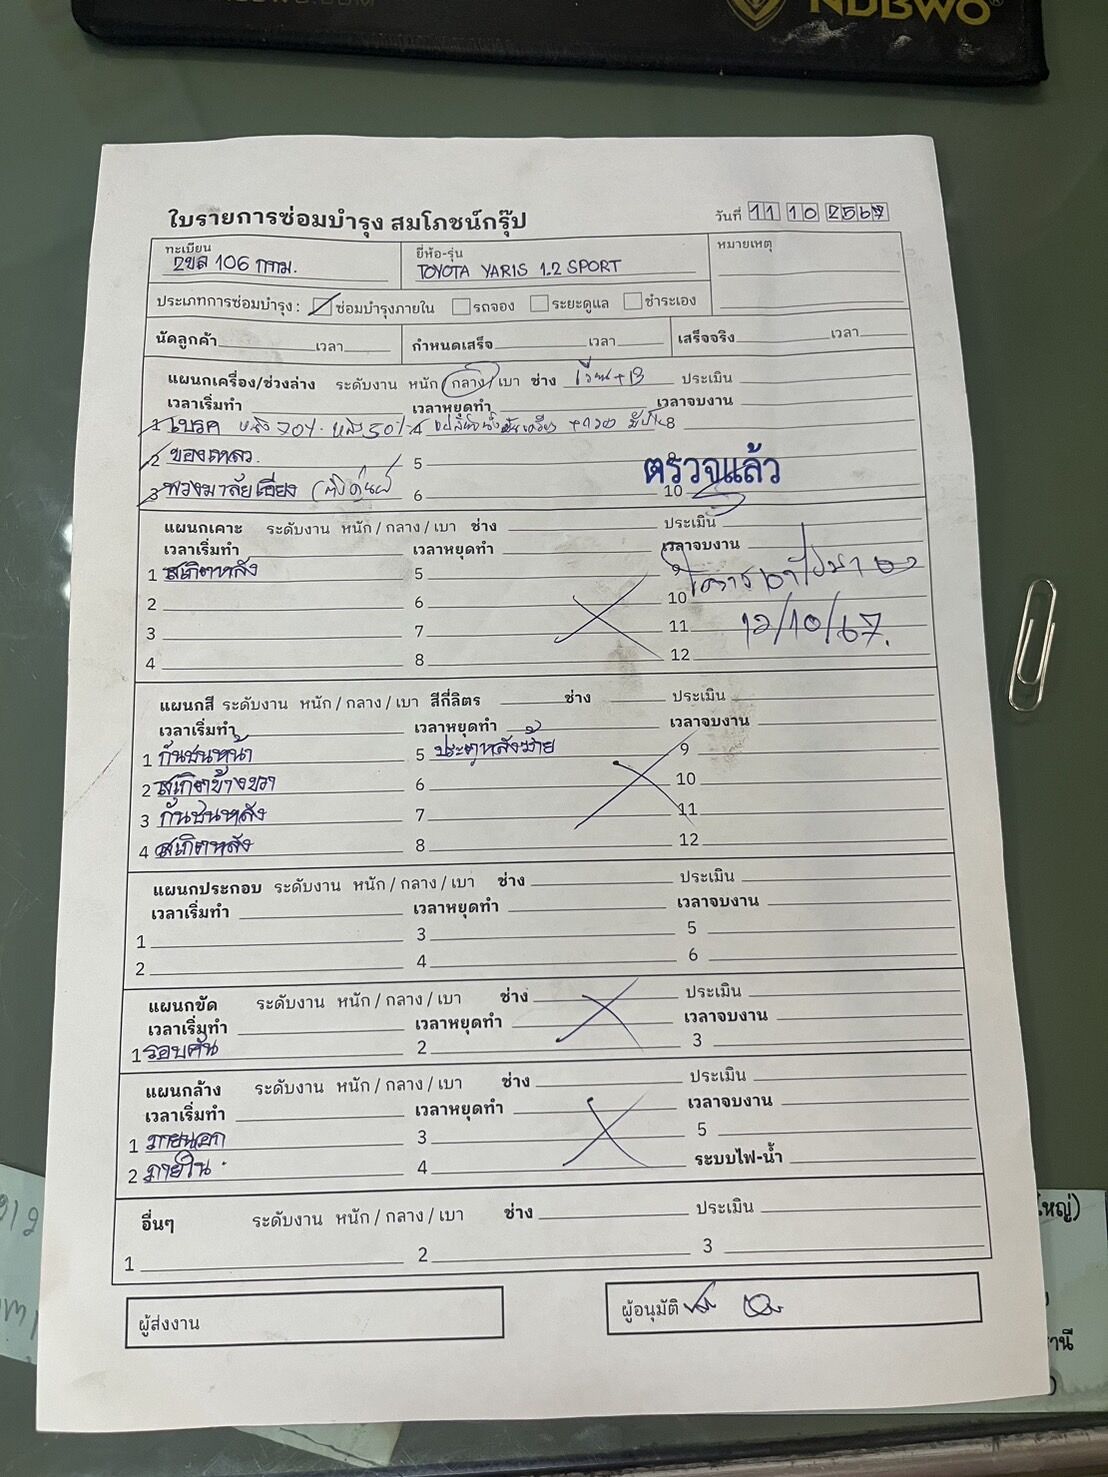 NDBWO
ใบรายการซ่อมบำรุง สมโภชน์กรุ๊ป
วันที่ 11 10 2567
ทะเบียน
2ขล 106 กทม.
ยี่ห้อ-รุ่น
TOYOTA YARIS 1.2 SPORT
หมายเหตุ
ประเภทการซ่อมบำรุง: ซ่อมบำรุงภายใน รถจอง ระยะดูแล ชำระเอง
นัดลูกค้า เวลา กำหนดเสร็จ เวลา เสร็จจริง เวลา
แผนกเครื่อง/ช่วงล่าง ระดับงาน หนัก / กลาง / เบา ช่าง ประเมิน
เวลาเริ่มทำ เวลาหยุดทำ เวลาจบงาน
1 เบรค 70% หลัง 50% 4 8
2 ของเหลว. 5 9
3 พวงมาลัยเอียง 6 10
ตรวจแล้ว
แผนกเคาะ ระดับงาน หนัก / กลาง / เบา ช่าง ประเมิน
เวลาเริ่มทำ เวลาหยุดทำ เวลาจบงาน
1 สเกิตหลัง 5 9
2 6 10
3 7 11 12/10/67.
4 8 12
แผนกสี ระดับงาน หนัก / กลาง / เบา สีกี่ลิตร ช่าง ประเมิน
เวลาเริ่มทำ เวลาหยุดทำ เวลาจบงาน
1 กันชนหน้า 5 ประตูหลังซ้าย 9
2 สเกิตข้างขวา 6 10
3 กันชนหลัง 7 11
4 สเกิตหลัง 8 12
แผนกประกอบ ระดับงาน หนัก / กลาง / เบา ช่าง ประเมิน
เวลาเริ่มทำ เวลาหยุดทำ เวลาจบงาน
1 3 5
2 4 6
แผนกขัด ระดับงาน หนัก / กลาง / เบา ช่าง ประเมิน
เวลาเริ่มทำ เวลาหยุดทำ เวลาจบงาน
1 รอบคัน 2 3
แผนกล้าง ระดับงาน หนัก / กลาง / เบา ช่าง ประเมิน
เวลาเริ่มทำ เวลาหยุดทำ เวลาจบงาน
1 ภายนอก 3 5
2 ภายใน 4 ระบบไฟ-น้ำ
อื่นๆ ระดับงาน หนัก / กลาง / เบา ช่าง ประเมิน
1 2 3
ผู้ส่งงาน
ผู้อนุมัติ